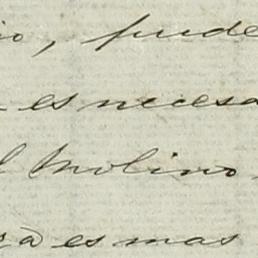 io, puede
es necesa
l Molino
es mas